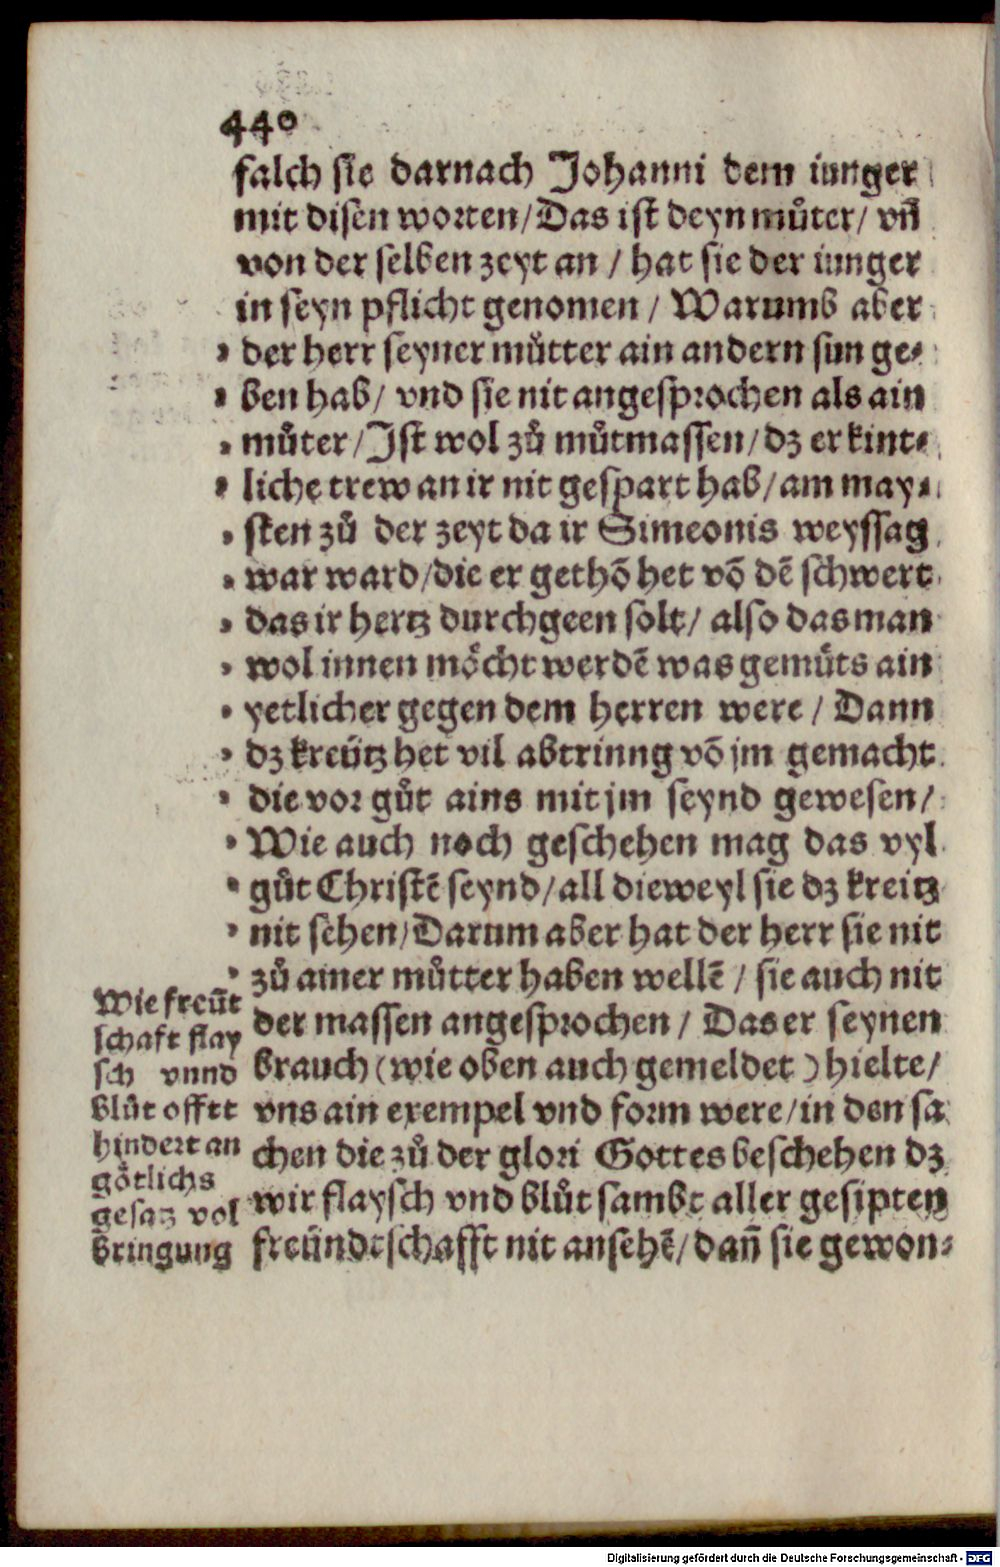 440
falch sie darnach Johanni dem iunger
mit disen worten/Das ist deyn můter/ vñ
von der selben zeyt an / hat sie der iunger
in seyn pflicht genomen / Warumb aber
der herr seyner můtter ain andern sun ge-
ben hab/ vnd sie nit angesprochen als ain
můter/Ist wol zů můtmassen/dz er kint-
liche trew an ir nit gespart hab/am may-
sten zů der zeyt da ir Simeonis weyssag
war ward/die er gethō het vō dē schwert
das ir hertz durchgeen solt/ also das man
wol innen möcht werdē was gemůts ain
yetlicher gegen dem herren were / Dann
dz kreütz het vil abtrinng vō jm gemacht
die vor gůt ains mit jm seynd gewesen/
Wie auch noch geschehen mag das vyl
gůt Christē seynd/all dieweyl sie dz kreitz
nit sehen/Darum aber hat der herr sie nit
zů ainer můtter haben wellē / sie auch nit
der massen angesprochen / Das er seynen
brauch (wie oben auch gemeldet ) hielte/
vns ain exempel vnd form were/in den sa
chen die zů der glori Gottes beschehen dz
wir flaysch vnd blůt sambt aller gesipten
freündtschafft nit ansehē/dañ sie gewon-
Wie freüt
schaft flay
sch vnnd
blůt offtt
hindert an
götlichs
gesatz vol
bringung
Digitalisierung gefördert durch die Deutsche Forschungsgemeinschaft - DFG